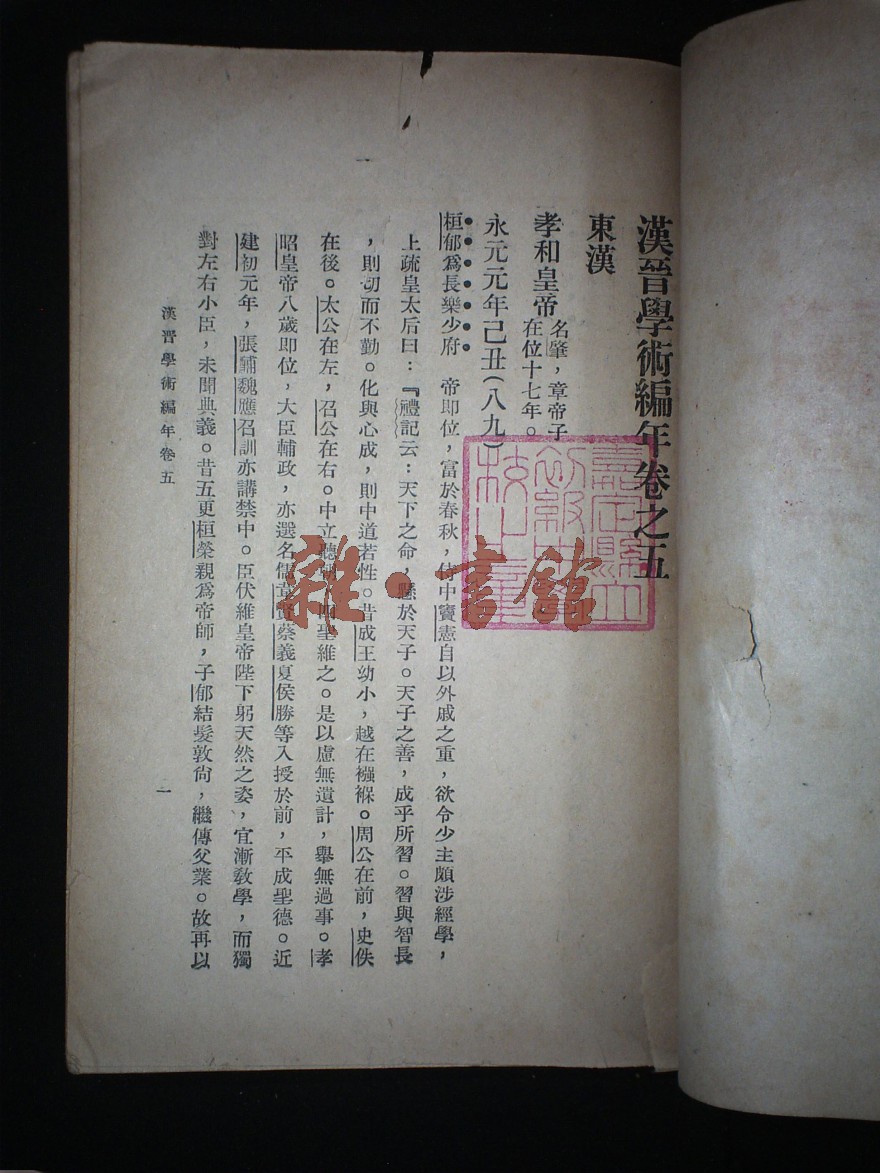 漢晉學術編年卷之五
東漢
孝和皇帝 名肇，章帝子
在位十七年。
永元元年己丑（八九）
桓郁爲長樂少府　帝即位，富於春秋，侍中竇憲自以外戚之重，欲令少主頗涉經學，
上疏皇太后曰：『禮記云：天下之命，懸於天子。天子之善，成乎所習。習與智長
，則切而不勤。化與心成，則中道若性。昔成王幼小，越在襁褓。周公在前，史佚
在後。太公在左，召公在右。中立聽朝，四聖維之。是以慮無遺計，舉無過事。孝
昭皇帝八歲即位，大臣輔政，亦選名儒韋賢蔡義夏侯勝等入授於前，平成聖德。近
建初元年，張酺魏應召訓亦講禁中。臣伏維皇帝陛下躬天然之姿，宜漸敎學，而獨
對左右小臣，未聞典義。昔五更桓榮親爲帝師，子郁結髮敦尙，繼傳父業。故再以
漢晉學術編年卷五
一
雜·書館
嘉定縣立
初級中
校
章